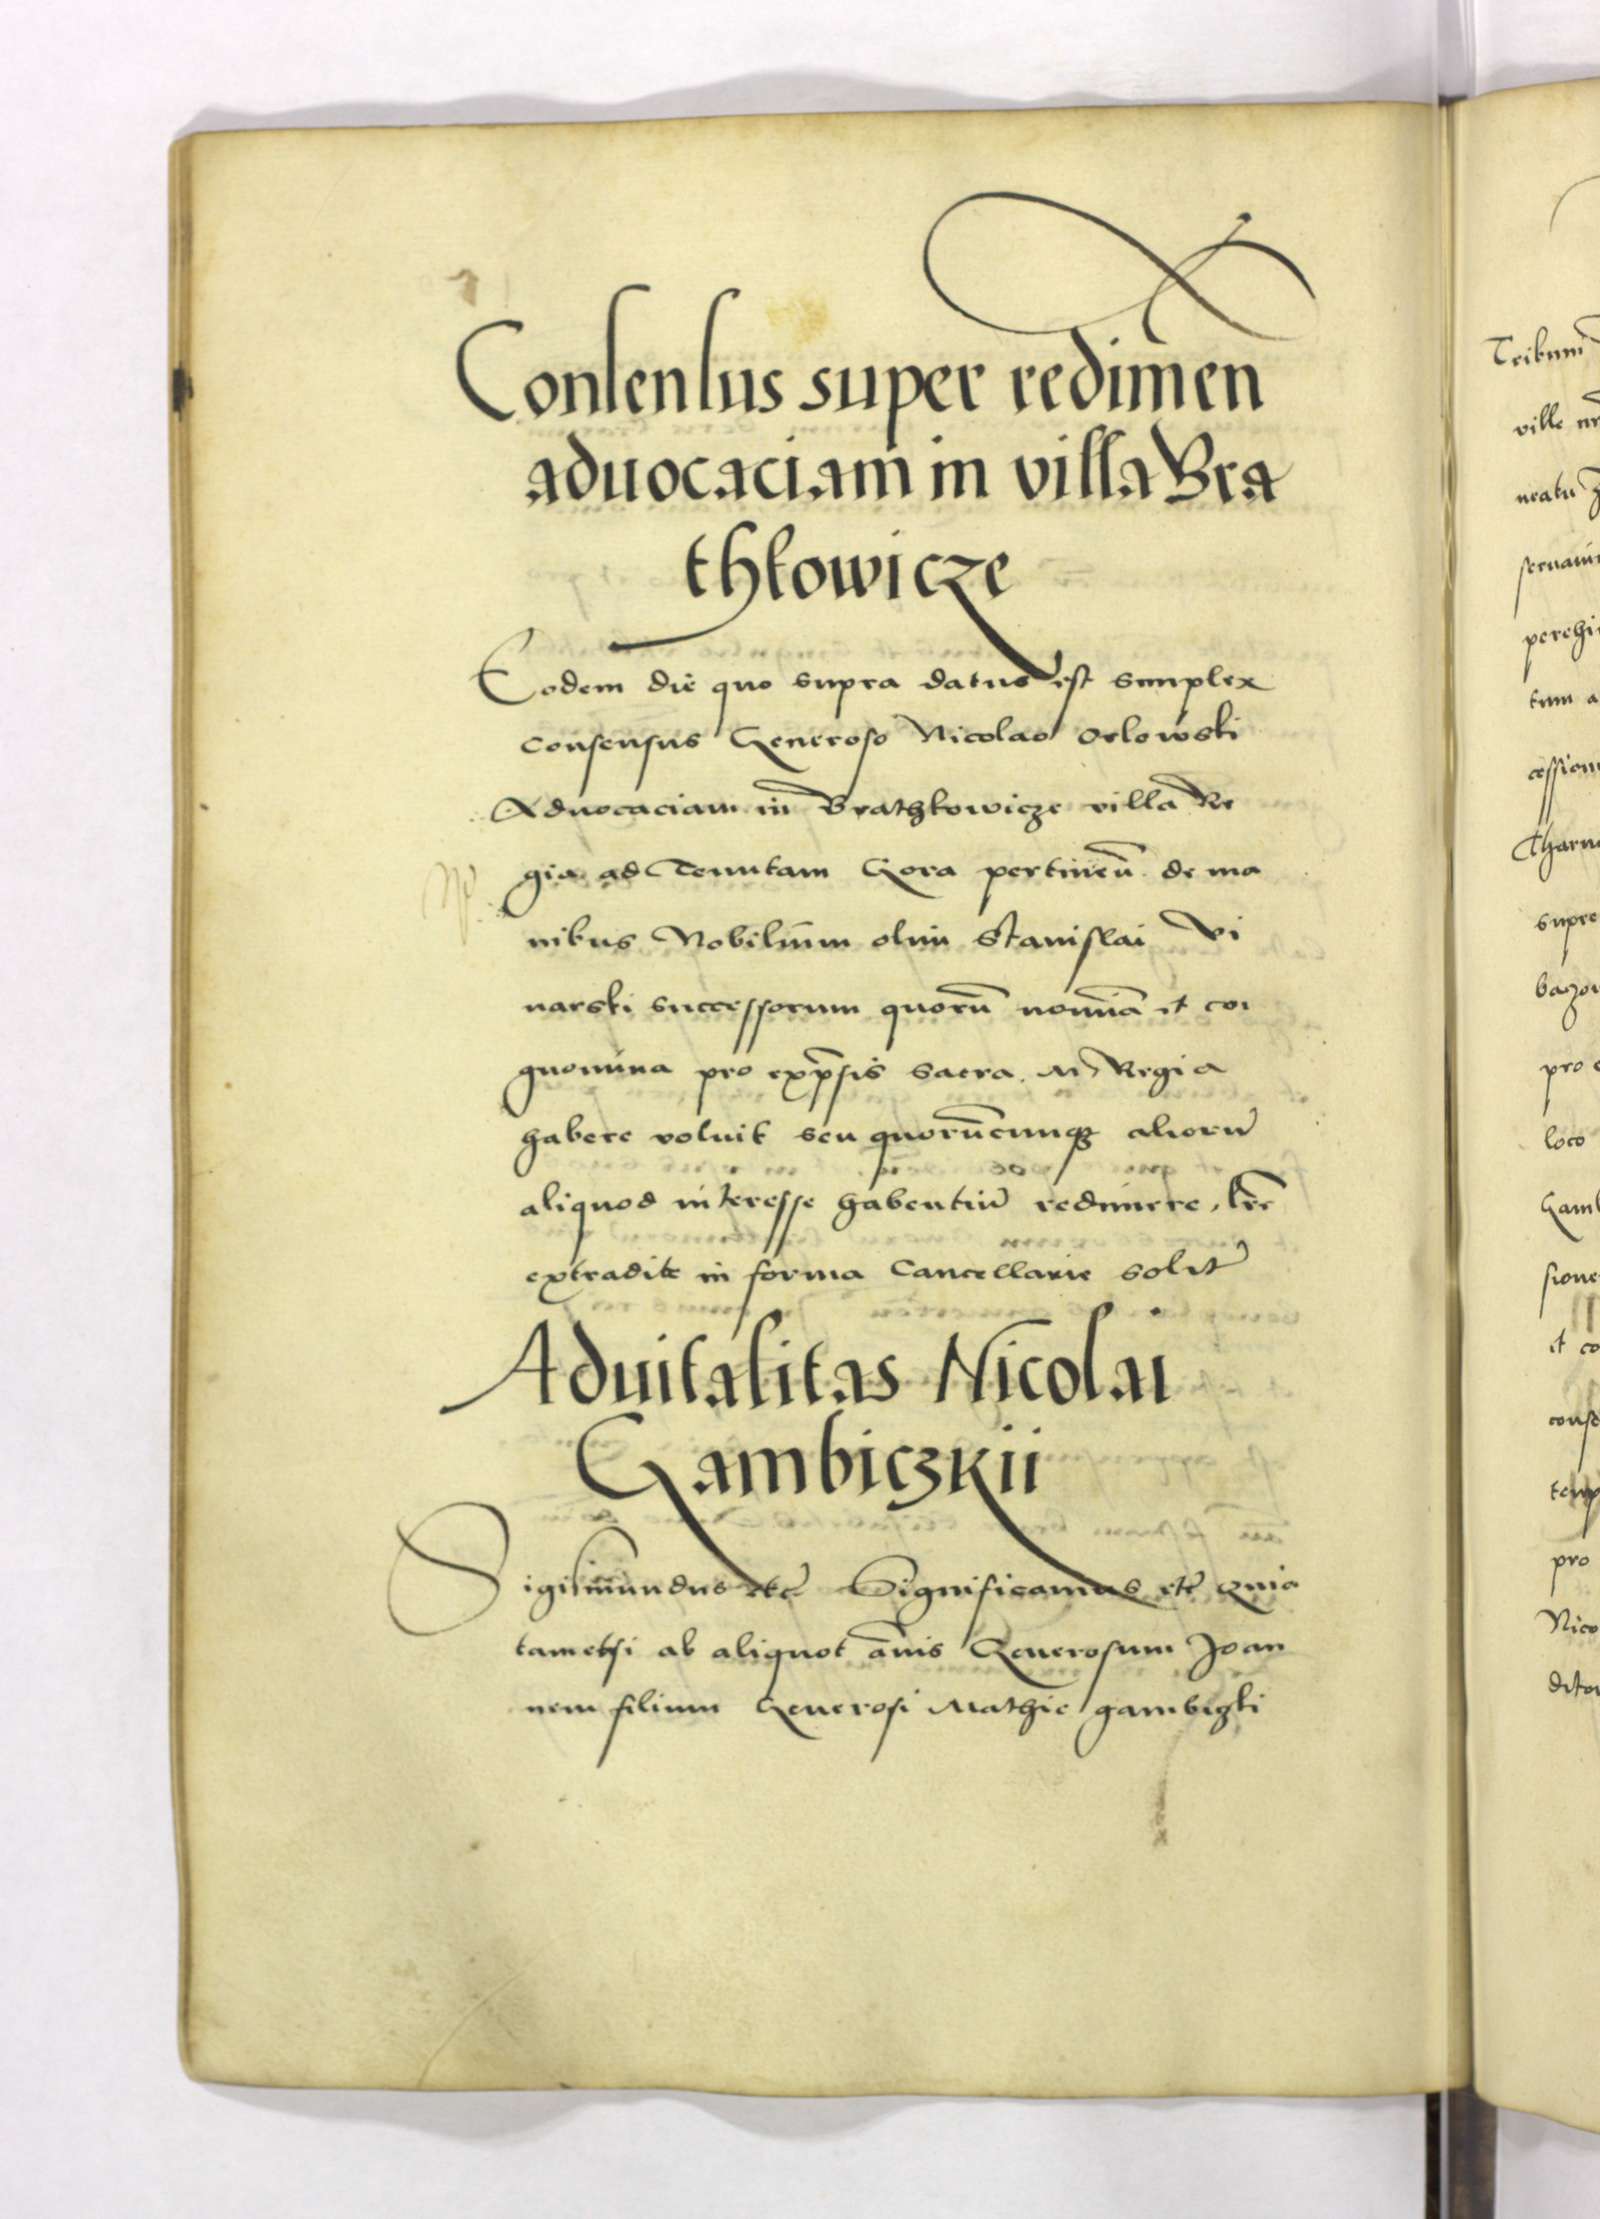 Consensus super redimen
aduocaciam in villa Bra
thkowicze
Eodem die quo supra datus est simplex
consensus Generoso Nicolao Orlowski
Aduocaciam in Brathkowicze villa Re
gia ad Tenutam Gora pertineñ de ma
nibus Nobilium olim Stanislai Vi
narski successorum quorū nomīa et co
gnomina pro exp̄ssis sacra M Regia
habere voluit seu quorūcunq3 aliorū
aliquod interesse habentiū redimere, lr̄e
extradite in forma Cancellarie solit
Aduitalitas Nicolai
Gambiczkii
Sigismundus etc̄ Significamus etc̄ Quia
tametsi ab aliquot ānis Generosum Joan
nem filium Generosi Mathie gambiczki
Tribuni
ville
neatu
seruaui
perehi
tum a
cession
Charn
supre
baczo
pro
loco
Gamb
sione
et co
conse
temp
pro
Nico
ditor